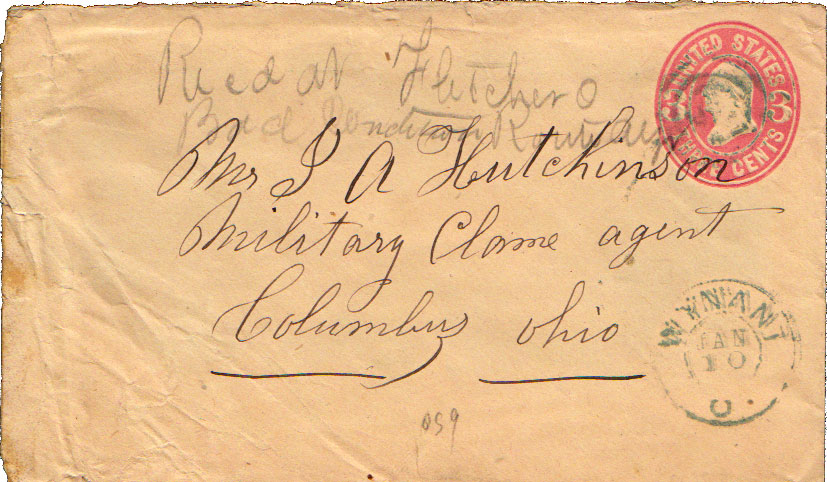 Recd at Fletcher O
Bad Condition
UNITED STATES
3 3
THREE CENTS
Mr J A Hutchinson
Military Clame agent
Columbus Ohio
WYNANT
JAN
10
O.
059